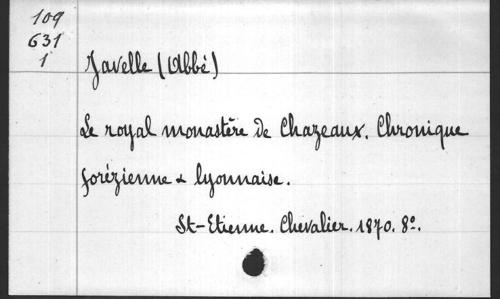 109
631
1
Javelle (Abbé)
Le royal monastère de Chazeaux. Chronique
forézienne & lyonnaise.
St-Etienne. Chevalier. 1870. 8º.